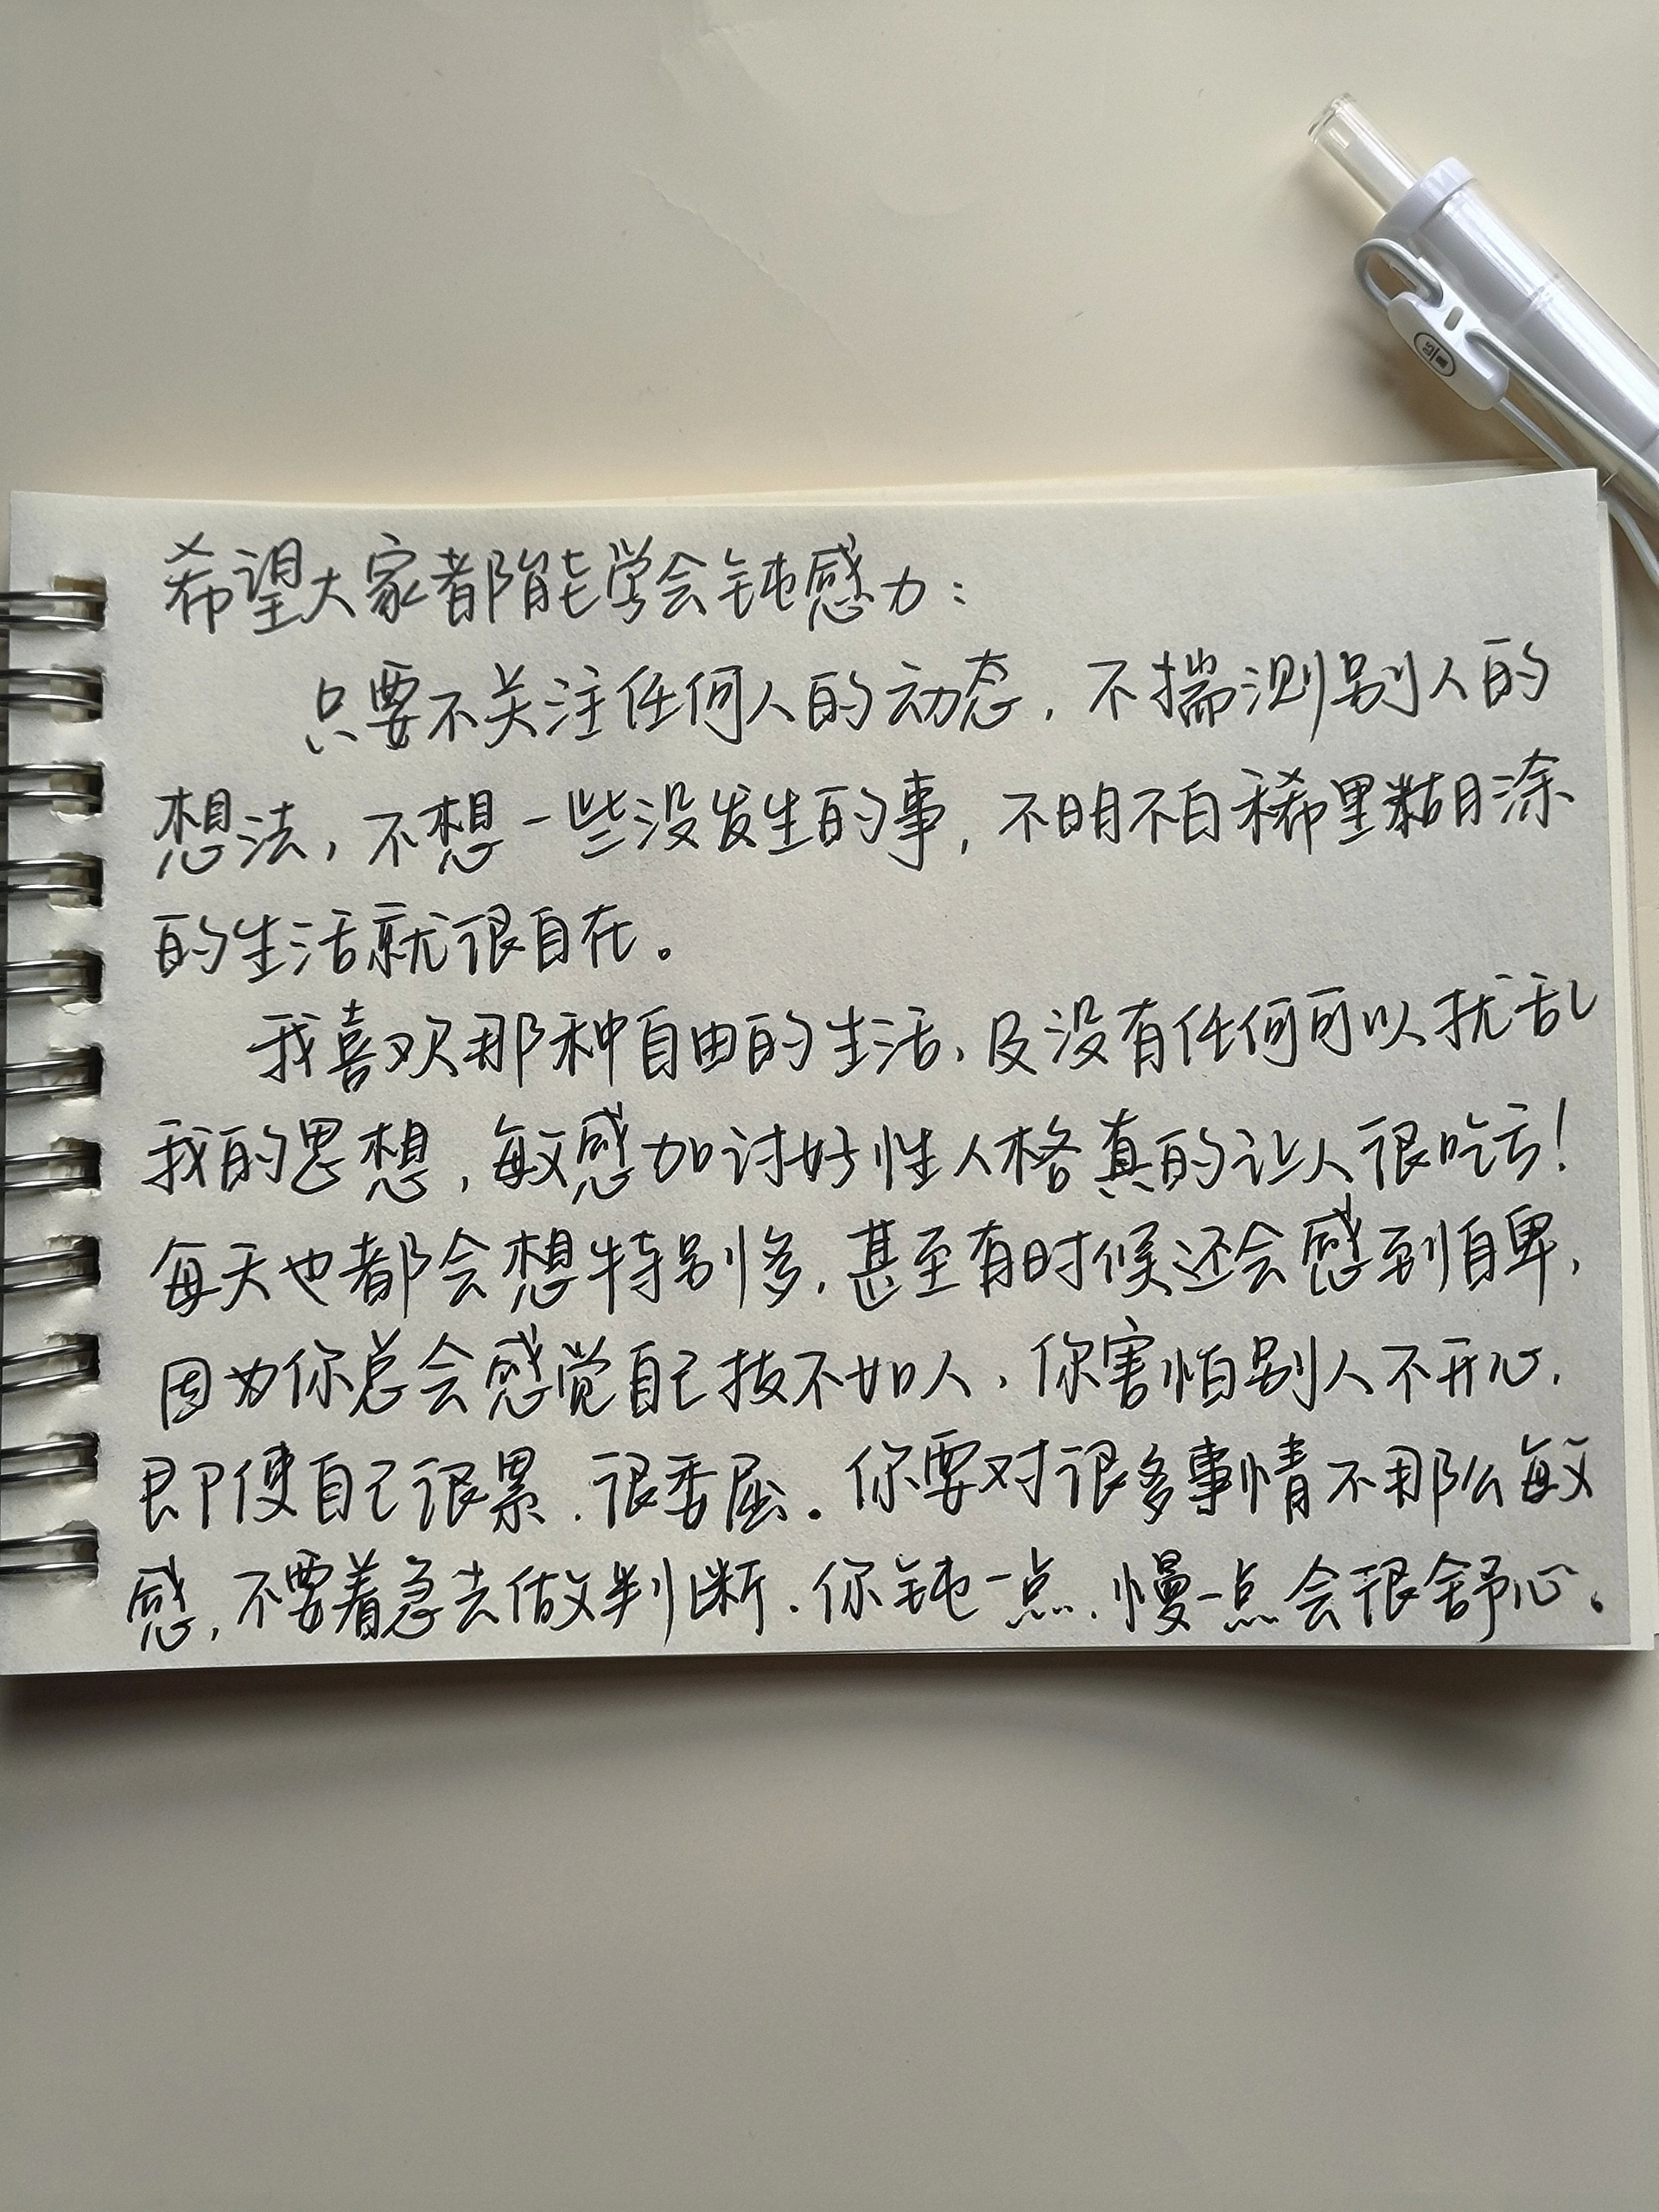 希望大家都能学会钝感力：
只要不关注任何人的动态，不揣测别人的
想法，不想一些没发生的事，不明不白稀里糊涂
的生活就很自在。
我喜欢那种自由的生活，及没有任何可以扰乱
我的思想，敏感加讨好性人格真的让人很吃亏！
每天也都会想特别多，甚至有时候还会感到自卑，
因为你总会感觉自己技不如人，你害怕别人不开心，
即使自己很累、很委屈。你要对很多事情不那么敏
感，不要着急去做判断，你钝一点、慢一点会很舒心。